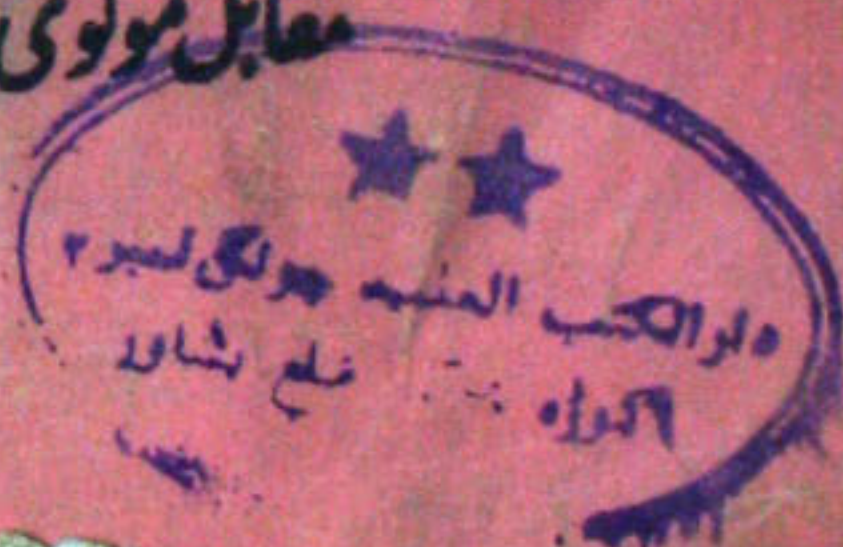 مقابل مولوی
دار الکتب الحنفیه جونگی نمبر ۲
اکوڑه ضلع پشاور